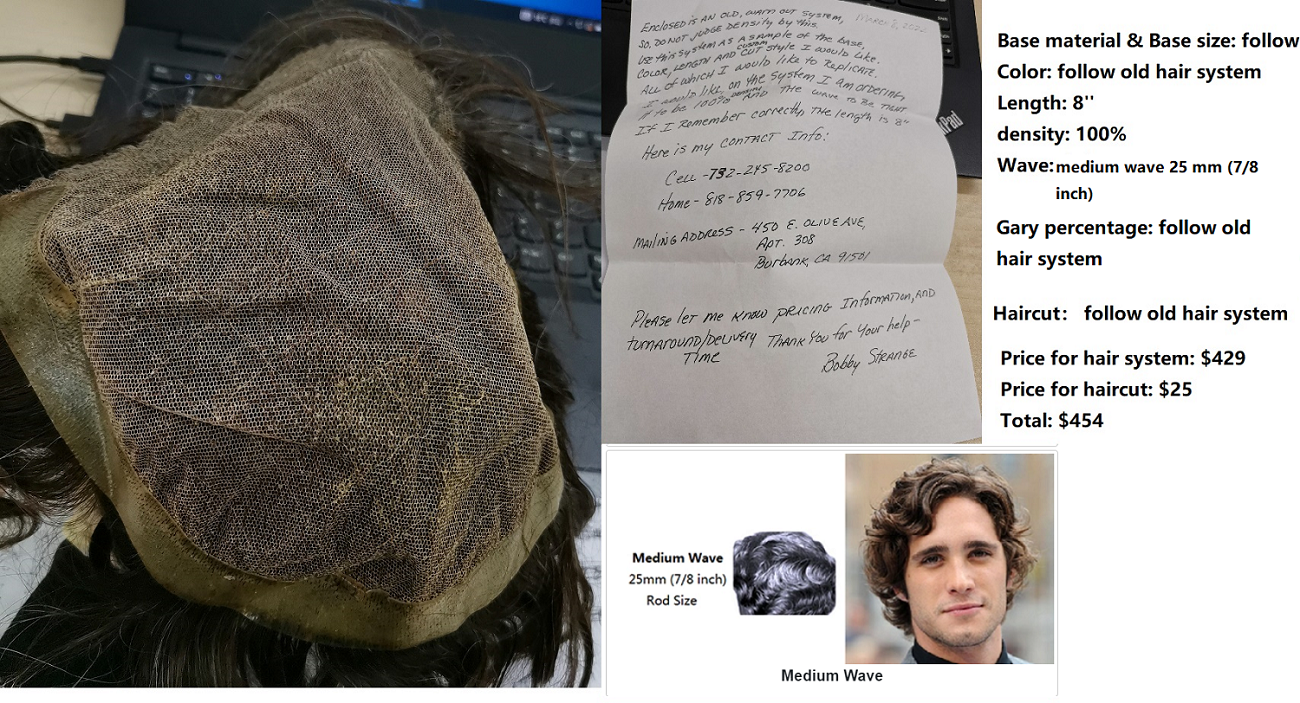 March 8, 2022
Enclosed is AN OLD, WARN OUT SYSTEM,
SO, DO NOT JUDGE DENSITY by this.
Use this system AS A SAMPLE of the BASE,
COLOR, LENGTH AND CUSTOM CUT style I would like.
ALL of which I would like to Replicate.
I would like on the system I am ordering,
it to be 100% DENSITY AND THE WAVE TO BE THAT
If I Remember correctly, the length is 8"
Here is my CONTACT Info:
Cell -732-245-8200
Home - 818-859-7706
MAILING ADDRESS - 450 E. OLIVE AVE,
APT. 308
Burbank, CA 91501
PLEASE let me know PRICING Information, AND
TURNAROUND/DELIVERY TIME Thank You for Your help-
Bobby STRANGE
Pad
Base material & Base size: follow
Color: follow old hair system
Length: 8''
density: 100%
Wave: medium wave 25 mm (7/8
inch)
Gary percentage: follow old
hair system
Haircut: follow old hair system
Price for hair system: $429
Price for haircut: $25
Total: $454
Medium Wave
25mm (7/8 inch)
Rod Size
Medium Wave